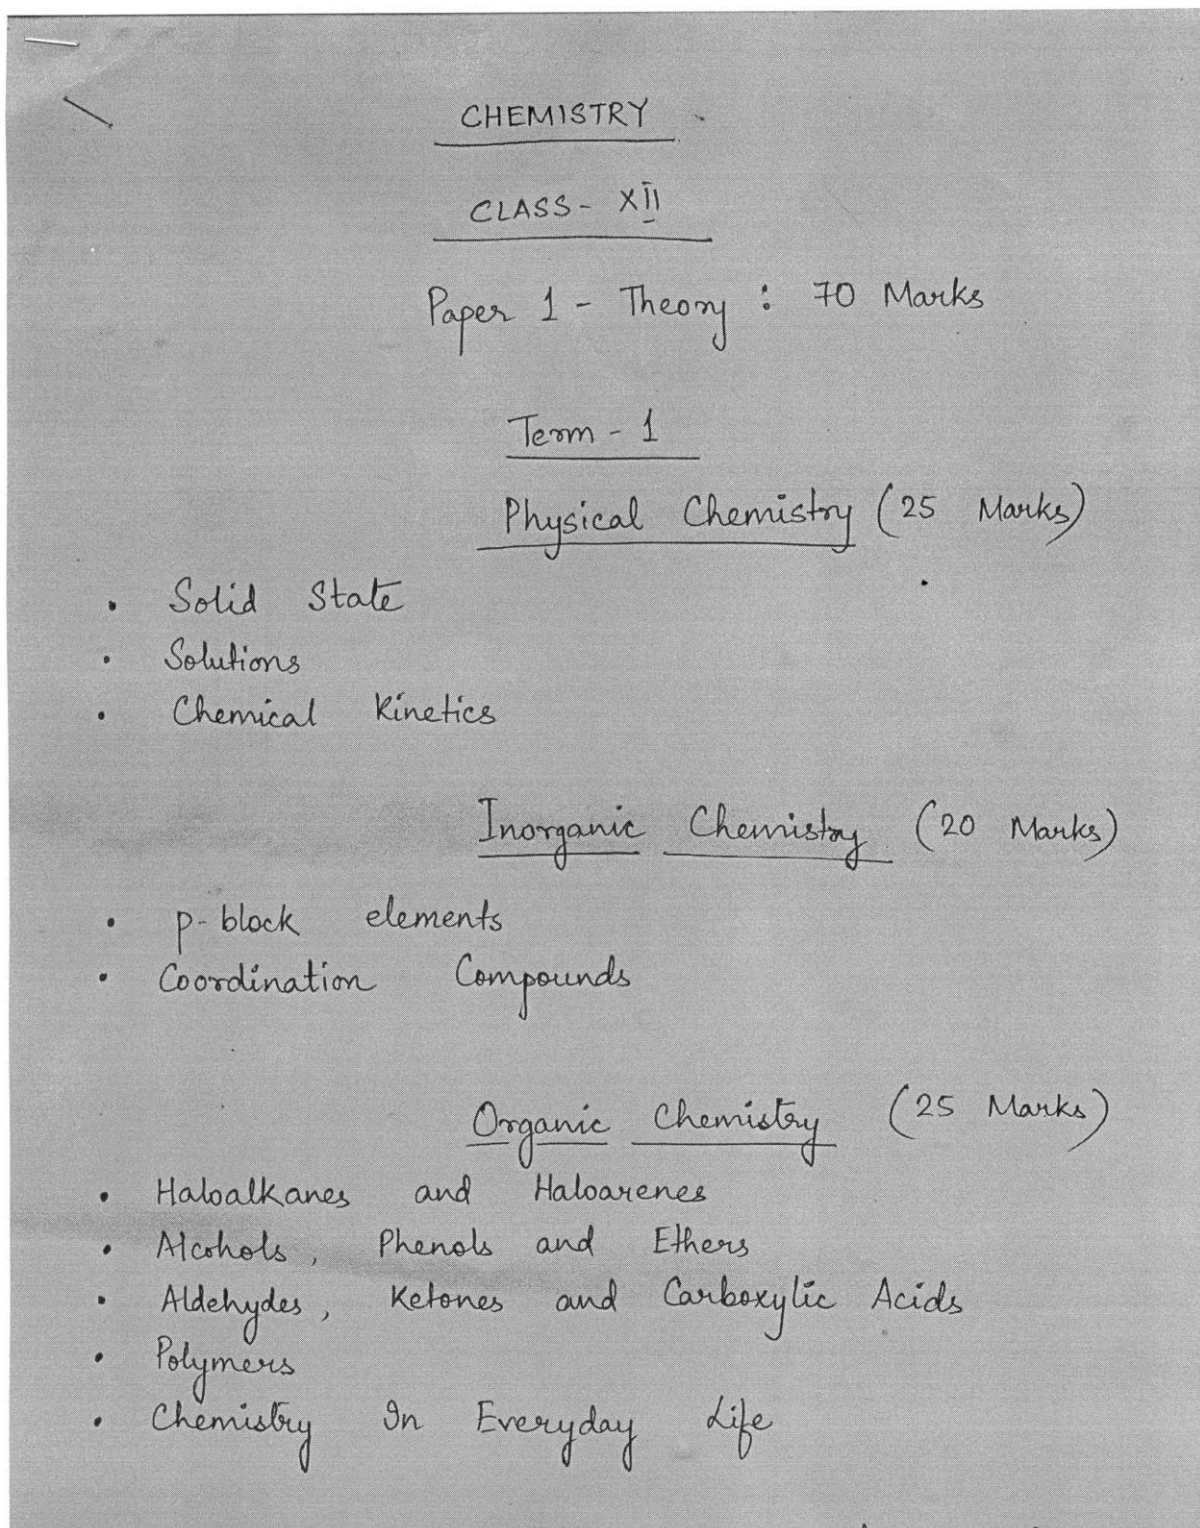 CHEMISTRY
CLASS - XII
Paper 1 - Theory : 70 Marks
Term - 1
Physical Chemistry (25 Marks)
• Solid State
• Solutions
• Chemical Kinetics
Inorganic Chemistry (20 Marks)
• p-block elements
• Coordination Compounds
Organic Chemistry (25 Marks)
• Haloalkanes and Haloarenes
• Alcohols, Phenols and Ethers
• Aldehydes, Ketones and Carboxylic Acids
• Polymers
• Chemistry In Everyday Life